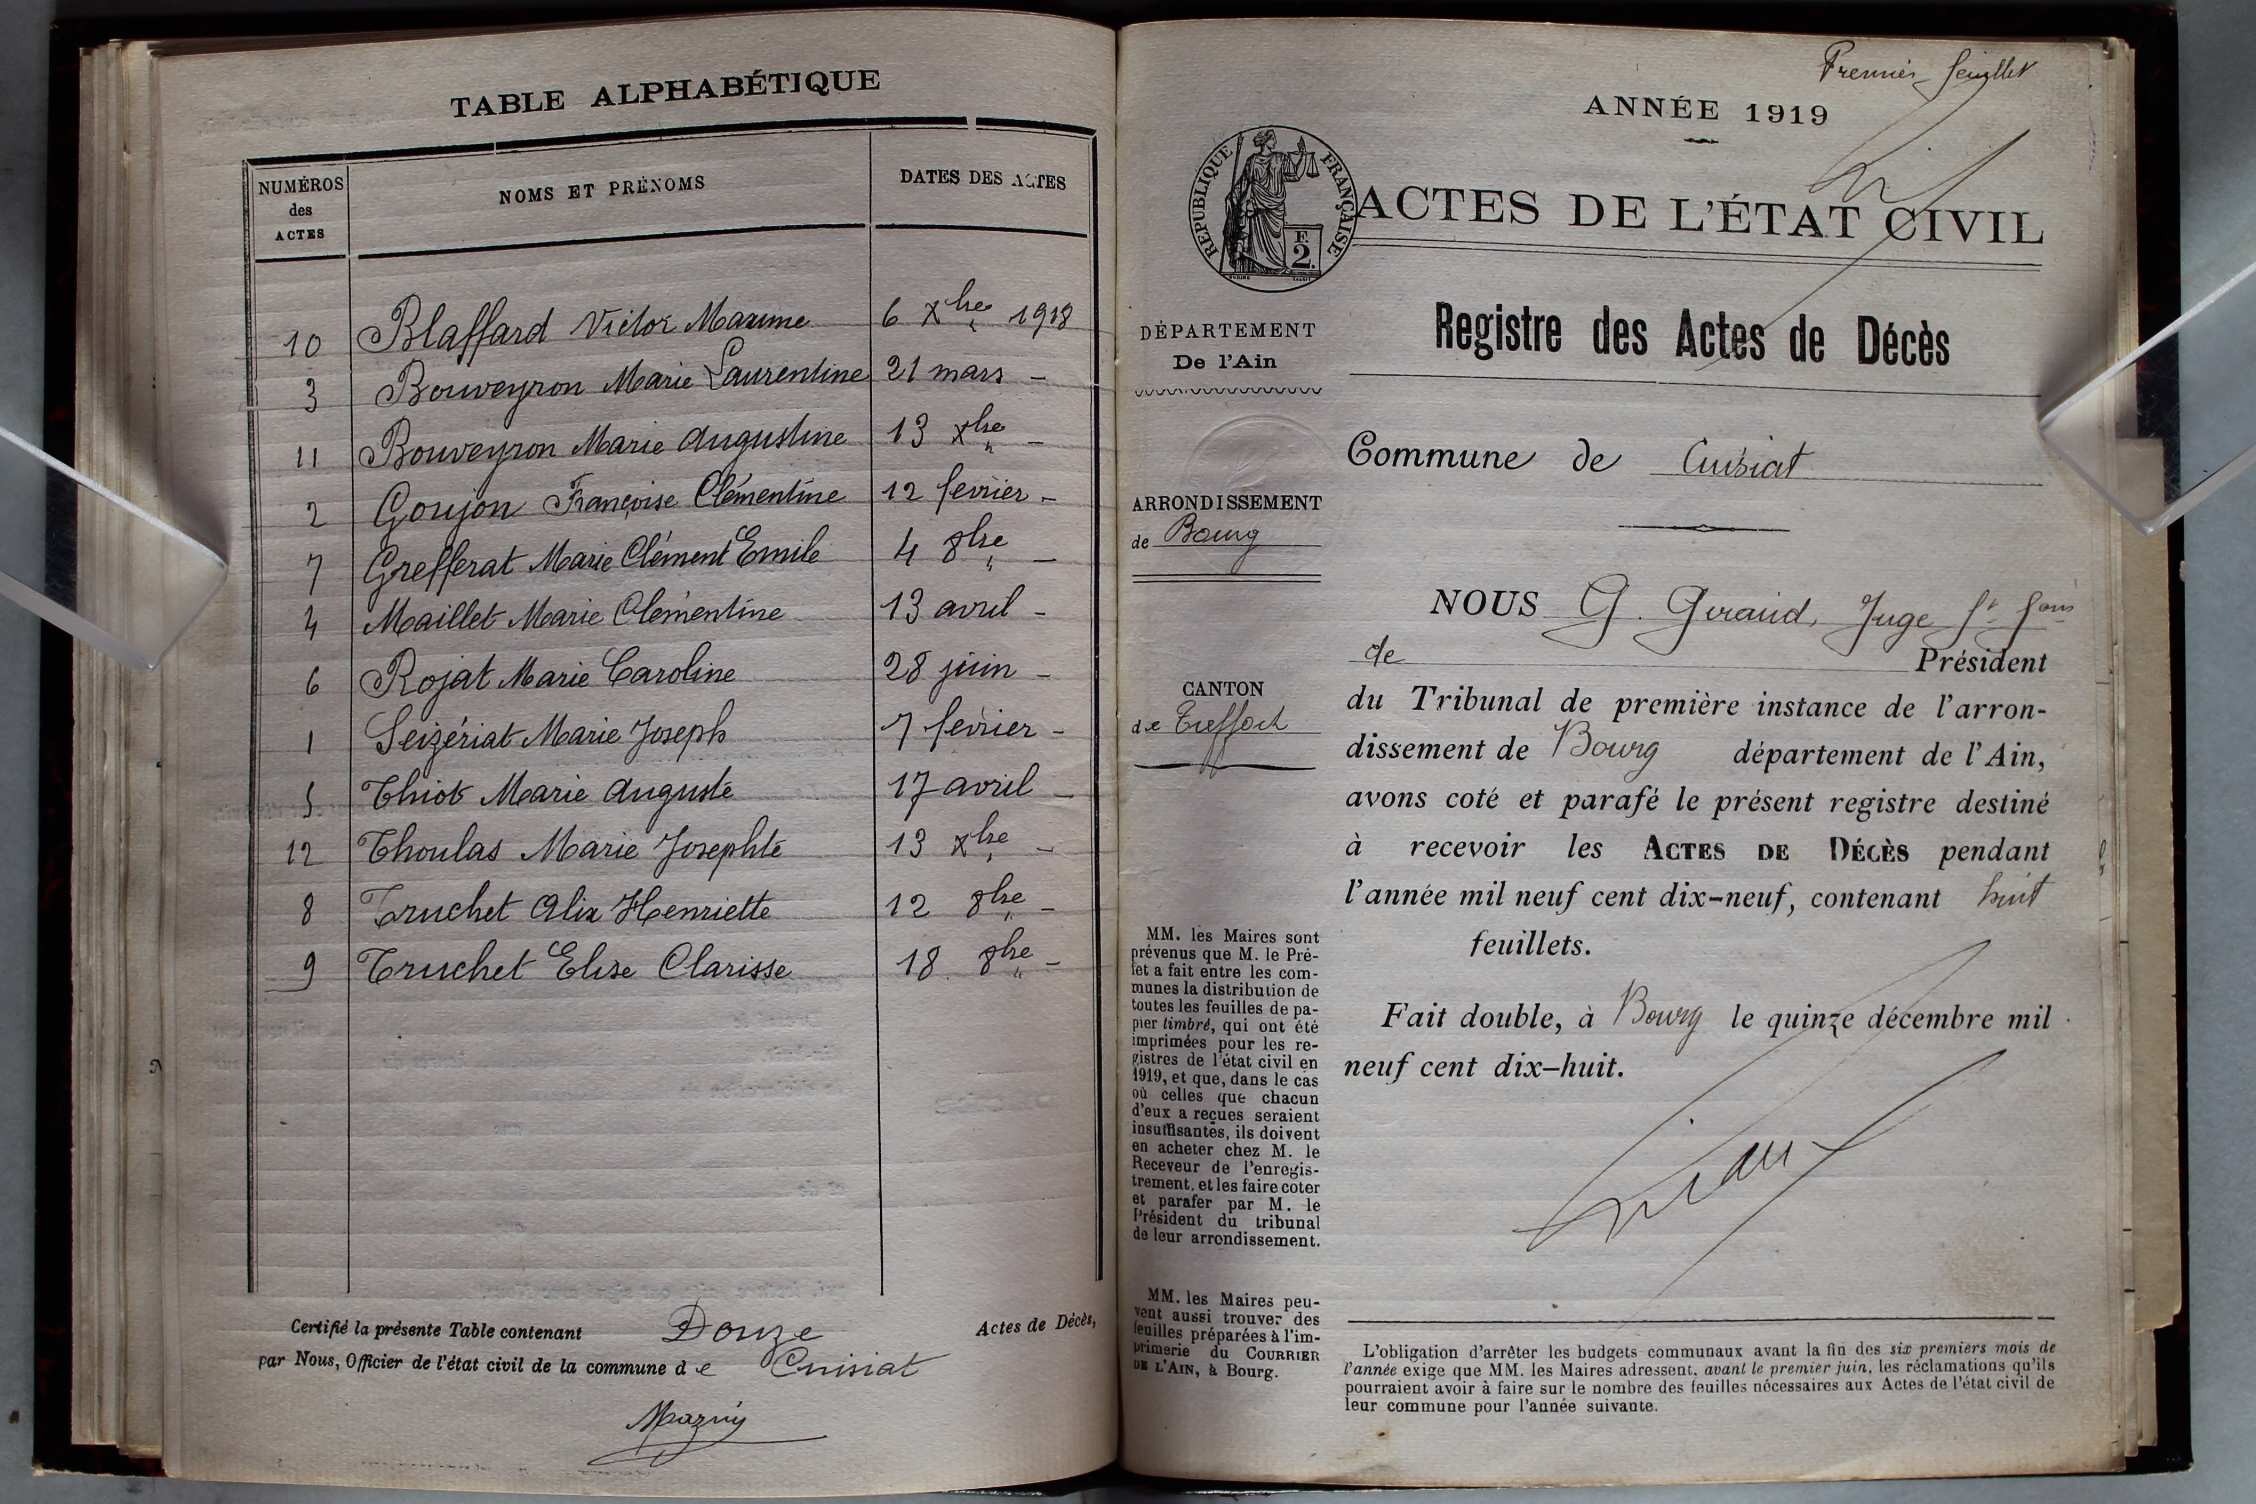 TABLE ALPHABÉTIQUE
NUMÉROS
des
ACTES
NOMS ET PRÉNOMS
DATES DES ACTES
10 Blaffard Victor Maxime 6 Xbre 1918
3 Bouveyron Marie Laurentine 21 mars -
11 Bouveyron Marie Augustine 13 Xbre -
2 Goujon Françoise Clémentine 12 fevrier -
7 Grefferat Marie Clément Emile 4 8bre -
4 Maillet Marie Clémentine 13 avril -
6 Rojat Marie Caroline 28 juin -
1 Seizériat Marie Joseph 7 février -
5 Thiot Marie Auguste 17 avril -
12 Thoulas Marie Josephte 13 Xbre -
8 Truchet Alix Henriette 12 8bre -
9 Truchet Elise Clarisse 18 8bre -
Certifié la présente Table contenant Douze Actes de Décès,
par Nous, Officier de l'état civil de la commune de Cuisiat
Premier feuillet
ANNÉE 1919
RÉPUBLIQUE FRANÇAISE
F
2.
ACTES DE L'ÉTAT CIVIL
Registre des Actes de Décès
DÉPARTEMENT
De l'Ain
Commune de Cuisiat
ARRONDISSEMENT
de Bourg
CANTON
de Treffort
NOUS G. Giraud, Juge
de Président
du Tribunal de première instance de l'arron-
dissement de Bourg département de l'Ain,
avons coté et parafé le présent registre destiné
à recevoir les ACTES DE DÉCÈS pendant
l'année mil neuf cent dix-neuf, contenant huit
feuillets.
Fait double, à Bourg le quinze décembre mil
neuf cent dix-huit.
MM. les Maires sont
prévenus que M. le Pré-
fet a fait entre les com-
munes la distribution de
toutes les feuilles de pa-
pier timbré, qui ont été
imprimées pour les re-
gistres de l'état civil en
1919, et que, dans le cas
où celles que chacun
d'eux a reçues seraient
insuffisantes, ils doivent
en acheter chez M. le
Receveur de l'enregis-
trement, et les faire coter
et parafer par M. le
Président du tribunal
de leur arrondissement.
MM. les Maires peu-
vent aussi trouver des
feuilles préparées à l'im-
primerie du COURRIER
DE L'AIN, à Bourg.
L'obligation d'arrêter les budgets communaux avant la fin des six premiers mois de
l'année exige que MM. les Maires adressent, avant le premier juin, les réclamations qu'ils
pourraient avoir à faire sur le nombre des feuilles nécessaires aux Actes de l'état civil de
leur commune pour l'année suivante.